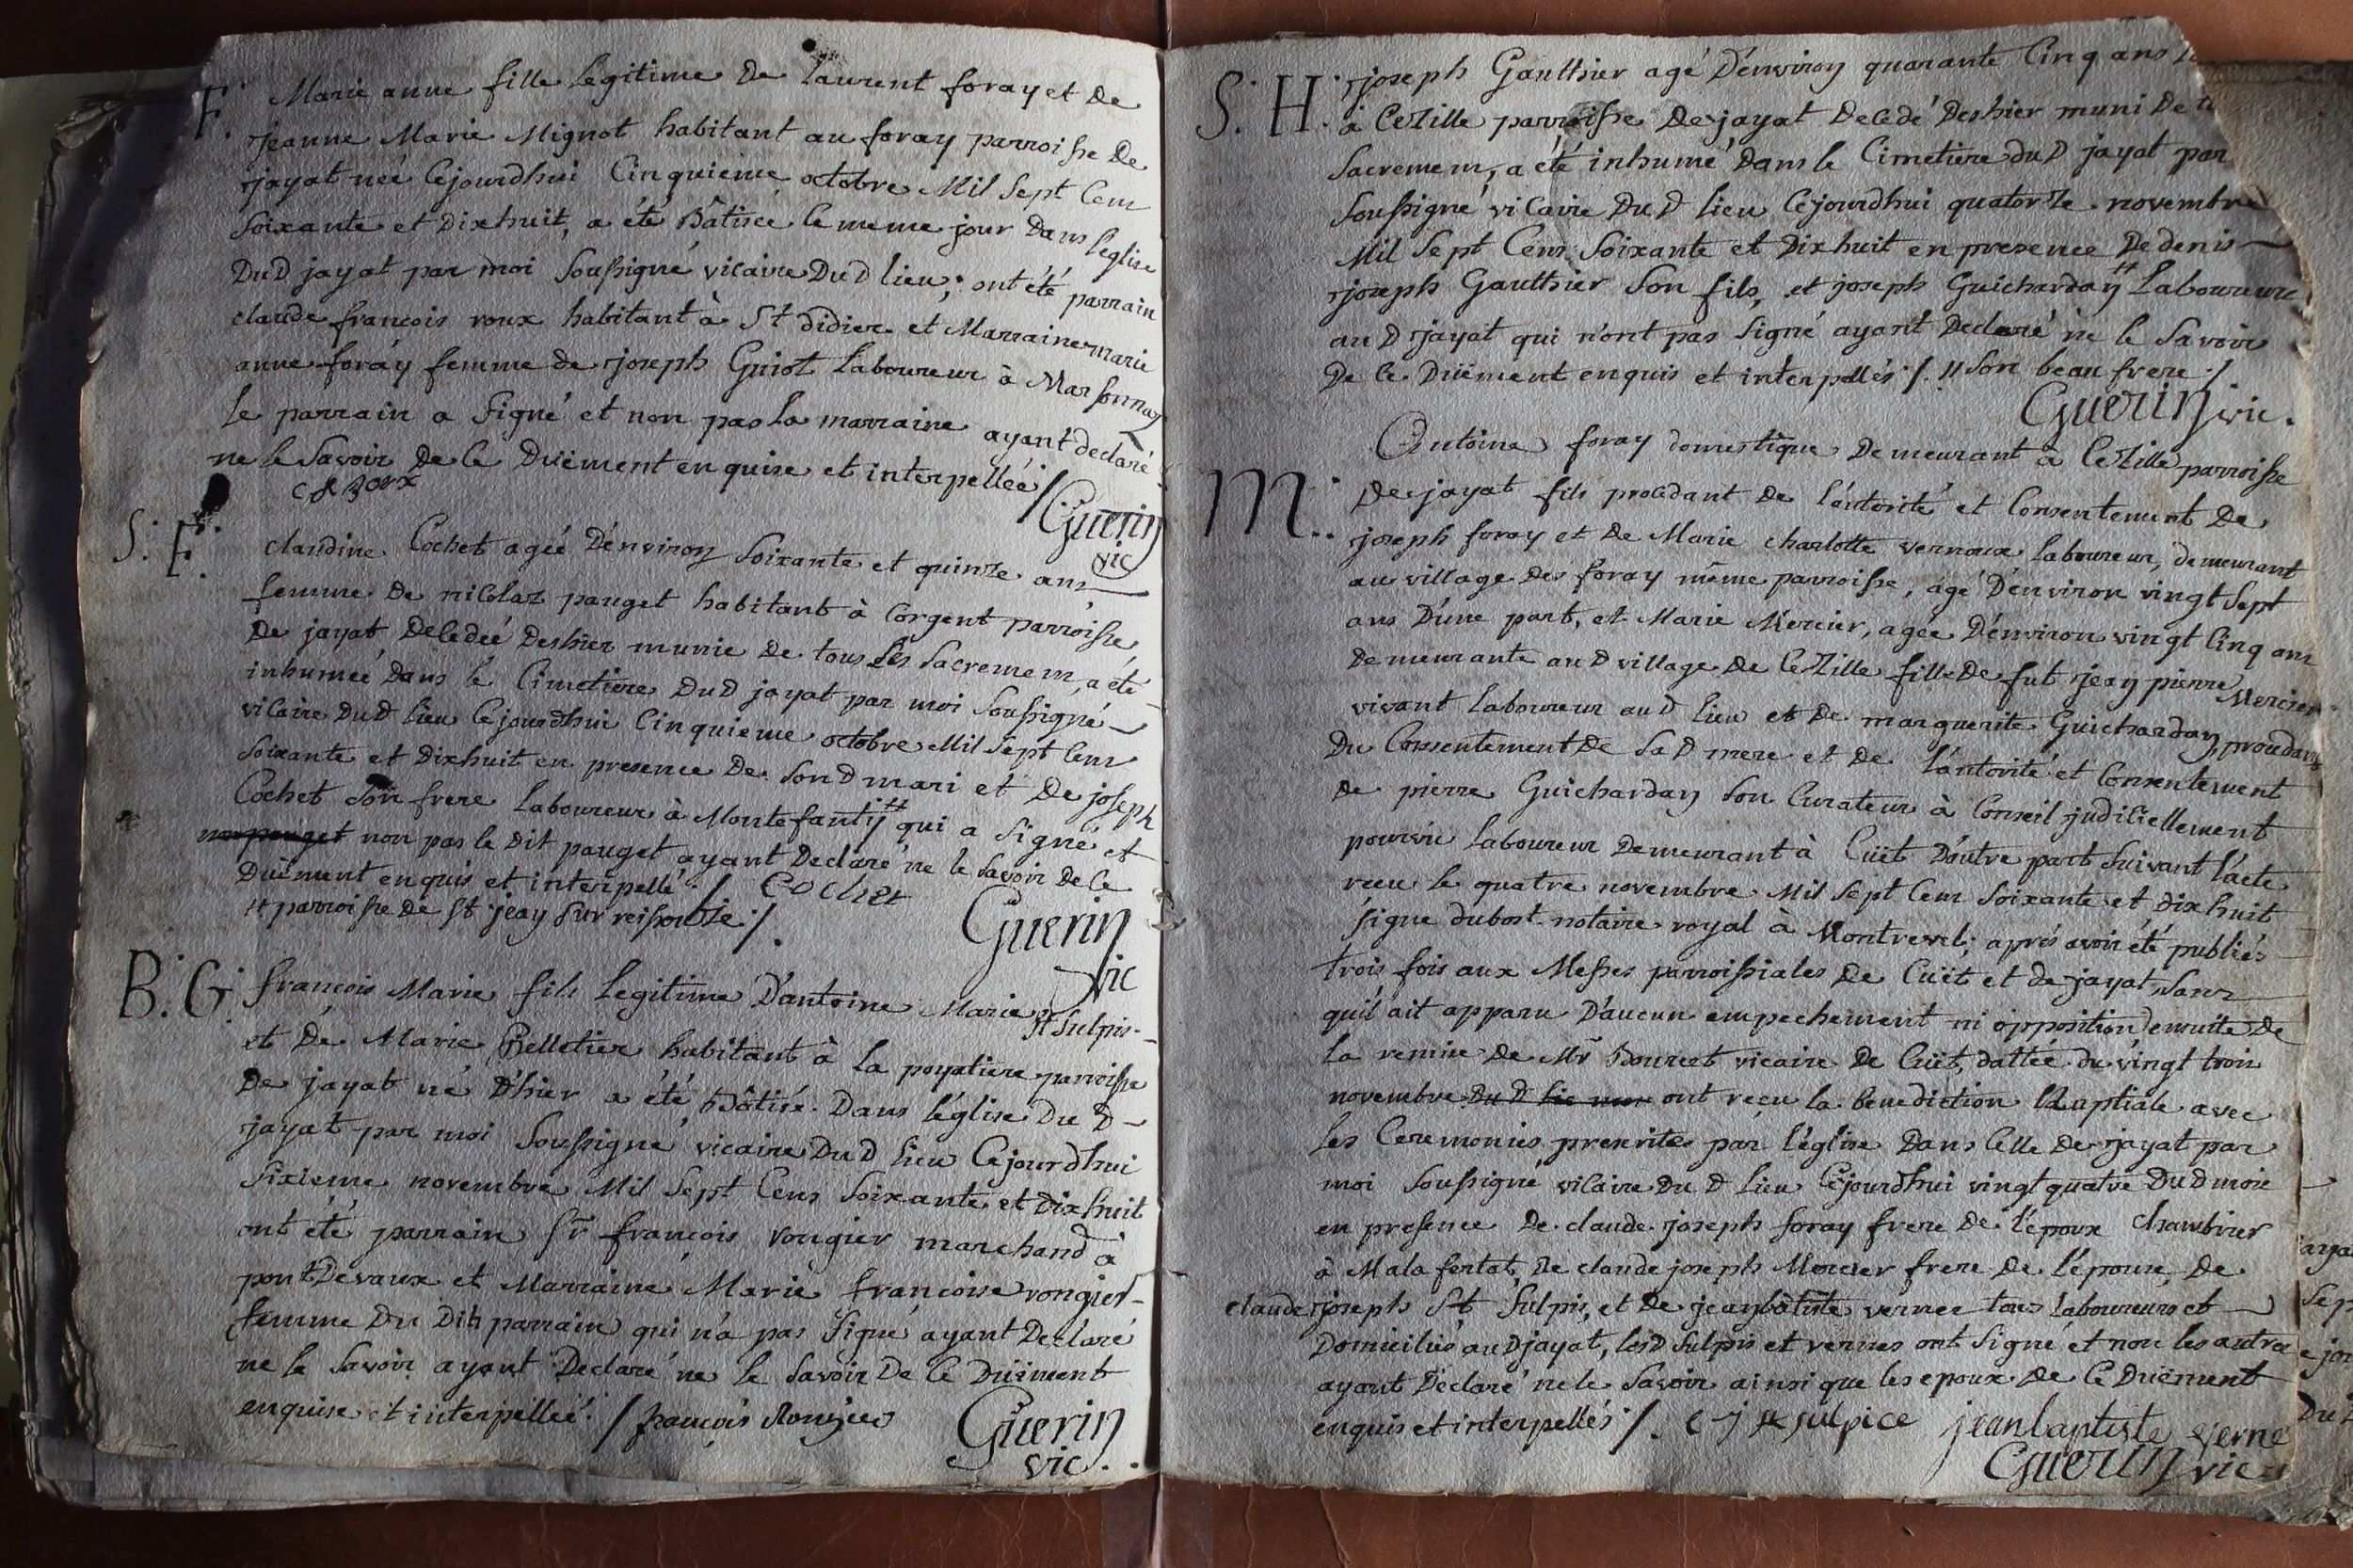 F. Marie anne fille legitime De laurent foray et De
jeanne Marie Mignot habitant au foray parroisse De
jayat née Cejourdhui Cinquieme octobre Mil Sept Cens
Soixante et Dixhuit, a été Bâtisée le meme jour Dans l'eglise
DuD jayat par moi Soussigné vicaire DuD lieu; ont été parrain
claude francois roux habitant à St didier et Marraine marie
anne foray femme de joseph Guiot Laboureur à Marsonnay
le parrain a Signé et non pas la marraine ayant declaré
ne le Savoir De Ce Duëment enquise et interpellée /.
Guerin
vic
S. F. claudine Cochet agée D'environ Soixante et quinze ans
femme De nicolas pauget habitant à Corgent parroisse
De jayat Decedée Deshier munie De tous les Sacremens, a été
inhumée Dans le Cimetiere DuD jayat par moi Soussigné
vicaire DuD lieu Cejourdhui Cinquieme octobre Mil Sept Cens
Soixante et Dixhuit en presence De SonD mari et De joseph
Cochet Son frere laboureur à Montefanty # qui a Signé et
non pas le Dit pauget ayant Declaré ne le Savoir De Ce
Duëment enquis et interpellé ./. Cochet
# parroisse De St jean Sur reissouse /.
Guerin
vic
B. G. francois Marie fils Legitime D'antoine Marie St Sulpis
et De Marie Pelletier habitant à la poyatiere parroisse
De jayat né D'hier a été Bâtisé Dans l'église Du D
jayat par moi Soussigné vicaire DuD lieu Cejourdhui
Sixieme novembre Mil Sept Cens Soixante et Dixhuit
ont été parrain Sr francois rongier marchand à
pont Devaux et Marraine Marie francoise rongier
femme Du Dit parrain qui n'a pas Signé ayant Declaré
ne le Savoir ayant Declaré ne le Savoir De Ce Duëment
enquise et interpellée ./ françois Rongier
Guerin
vic.
S. H. joseph Gauthier agé D'environ quarante Cinq ans
à Cezille parroisse De jayat Decedé Deshier muni De
Sacremens, a été inhumé Dans le Cimetiere duD jayat par
Soussigné vicaire DuD lieu Cejourdhui quatorze novembre
Mil Sept Cens Soixante et Dixhuit en presence De denis
joseph Gauthier Son fils, et joseph Guichardan # Laboureurs
auD jayat qui n'ont pas Signé ayant Declaré ne le Savoir
De Ce Duëment enquis et interpellés ./. # Son beau frere ./
Guerin vic.
M. Antoine foray domestique Demeurant à Cezille parroisse
De jayat fils procedant de l'autorité et Consentement De
joseph foray et de Marie charlotte vernoux laboureur, demeurant
au village des foray même parroisse, agé D'environ vingt Sept
ans D'une part, et Marie Mercier, agée D'environ vingt Cinq ans
Demeurante auD village De Cezille fille De fut jean pierre Mercier
vivant laboureur auD lieu et De marguerite Guichardan, procedante
Du Consentement De SaD mere et De l'autorité et Consentement
De pierre Guichardan Son Curateur à Conseil judiciellement
pourvû laboureur Demeurant à Cuët D'autre part Suivant l'acte
reçu le quatre novembre Mil Sept Cens Soixante et Dixhuit
Signé dubost notaire royal à Montrevel; aprés avoir été publiés
trois fois aux Messes parroissiales De Cuët et de jayat, Sans
quil ait apparu D'aucun empechement ni opposition ensuite De
la remise De Mr Bourcet vicaire De Cuët, dattée du vingt trois
novembre ont reçu la benediction Nuptiale avec
les Ceremonies prescrites par l'église Dans Celle De jayat par
moi Soussigné vicaire Du D lieu Cejourdhui vingt quatre DuD mois
en presence De claude joseph foray frere De l'époux chambrier
à Malafertat, De claude joseph Mercier frere De l'épouse, De
claude joseph St Sulpis, et De jean bâtiste vernes tous laboureurs et
Domiciliés auD jayat, lesD Sulpis et vernes ont Signé et non les autres
ayant Declaré ne le Savoir ainsi que les epoux De Ce Duëment
enquis et interpellés ./. C j st sulpice jean baptiste verne
Guerin vic